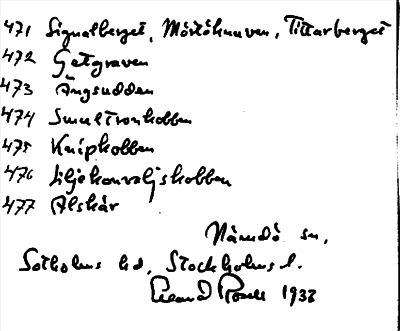 471 Signalberget, Mörtöhuvven, Tittarberget
472 Getgraven
473 Ängsudden
474 Smultronkobben
475 Knipkobben
476 Liljekonvaljskobben
477 Alskär
Nämdö sn,
Sotholms hd, Stockholms l.
1933